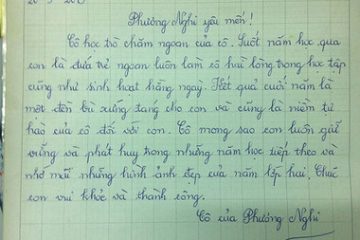 Phương Nghi yêu mến!
Cô học trò chăm ngoan của cô. Suốt năm học qua
con là đứa trẻ ngoan luôn làm cô hài lòng trong học tập
cũng như sinh hoạt hằng ngày. Kết quả cuối năm là
một đền bù xứng đáng cho con và cũng là niềm tự
hào của cô đối với con. Cô mong sao con luôn giữ
vững và phát huy trong những năm học tiếp theo và
nhớ mãi những hình ảnh đẹp của năm lớp hai. Chúc
con vui khỏe và thành công.
Cô của Phương Nghi